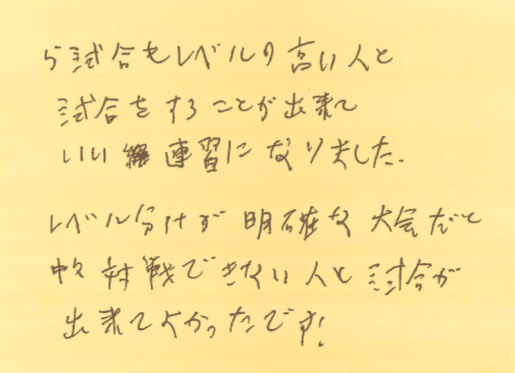 ら試合もレベルの高い人と
試合をすることが出来て
いい練習になりました.
レベル分けが明確な大会だと
中々対戦できない人と試合が
出来てよかったです!